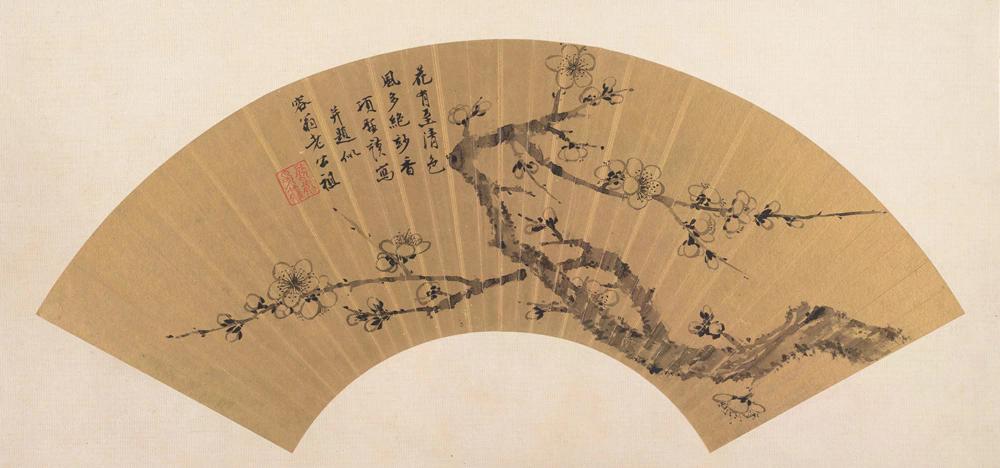 花有至清色
風多絕妙香
項聖謨寫
并題似
容翁老公祖